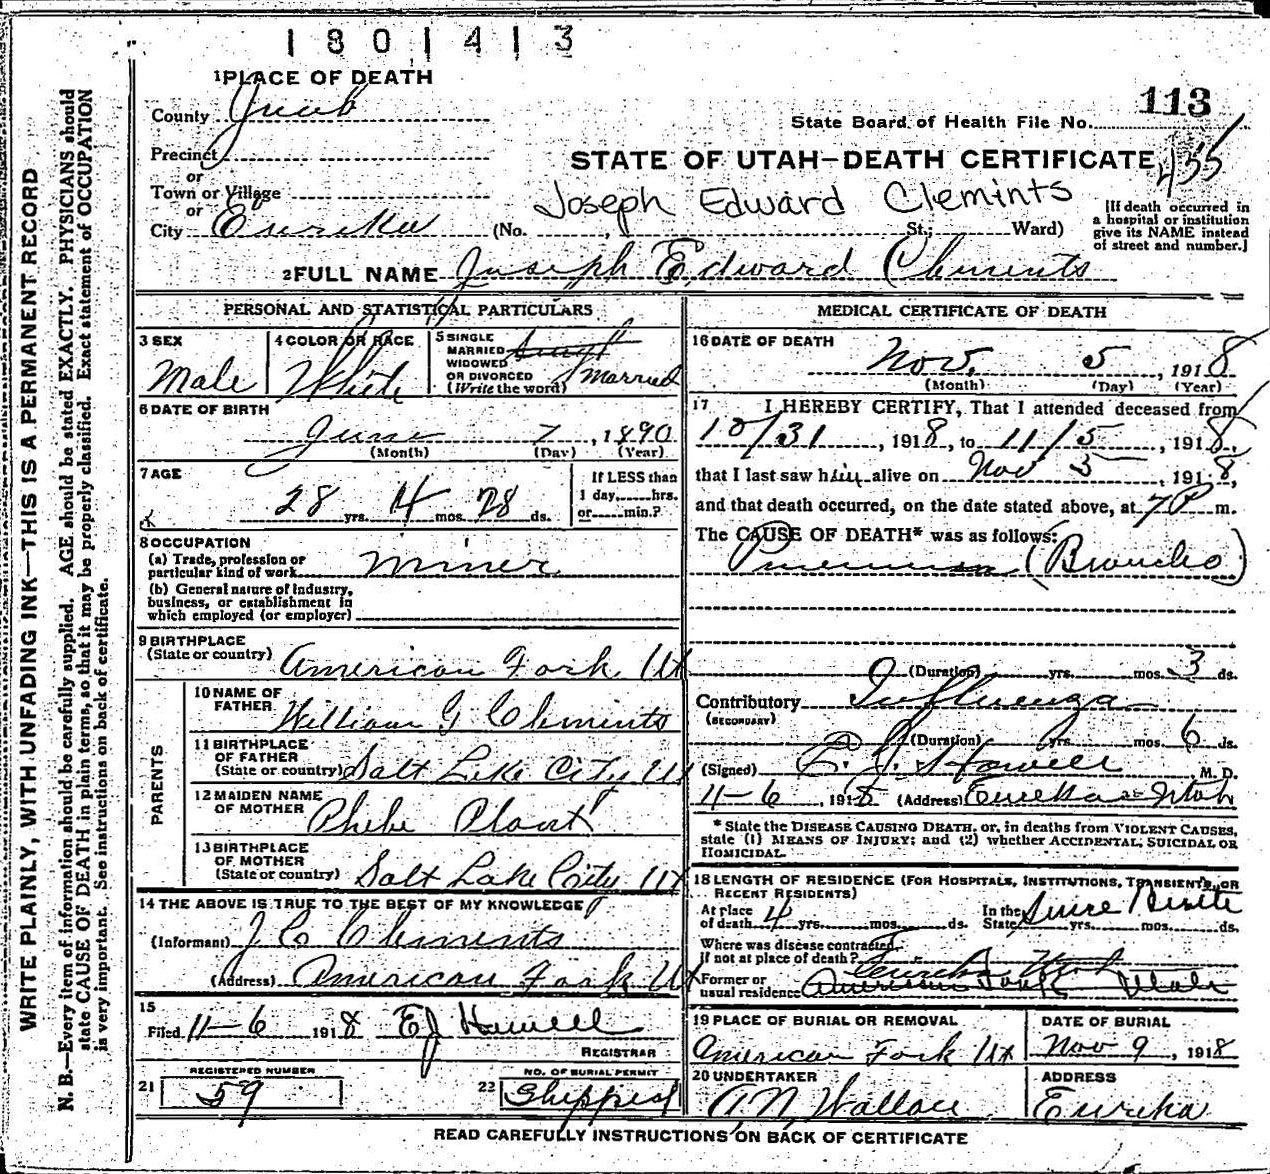 1801413
1 PLACE OF DEATH
County Juab
113
State Board of Health File No.
Precinct
or
STATE OF UTAH—DEATH CERTIFICATE
455
Town or Village
or
Joseph Edward Clemints
City Eureka (No. St.; Ward)
[If death occurred in
a hospital or institution
give its NAME instead
of street and number.]
2 FULL NAME Joseph Edward Clements
PERSONAL AND STATISTICAL PARTICULARS
3 SEX
Male
4 COLOR OR RACE
White
5 SINGLE
MARRIED
WIDOWED
OR DIVORCED
(Write the word)
Single
Married
6 DATE OF BIRTH
June 7, 1890
(Month) (Day) (Year)
7 AGE
28 yrs. 4 mos. 28 ds.
If LESS than
1 day,......hrs.
or......min.?
8 OCCUPATION
(a) Trade, profession or
particular kind of work Miner
(b) General nature of industry,
business, or establishment in
which employed (or employer)
9 BIRTHPLACE
(State or country) American Fork Ut
PARENTS
10 NAME OF
FATHER William G Clements
11 BIRTHPLACE
OF FATHER
(State or country) Salt Lake City U
12 MAIDEN NAME
OF MOTHER Phebe Plant
13 BIRTHPLACE
OF MOTHER
(State or country) Salt Lake City Ut
14 THE ABOVE IS TRUE TO THE BEST OF MY KNOWLEDGE
(Informant) J C Clements
(Address) American Fork Ut
15
Filed 11-6 1918 E J Howell
REGISTRAR
REGISTERED NUMBER
21 59
NO. OF BURIAL PERMIT
22 Shipped
MEDICAL CERTIFICATE OF DEATH
16 DATE OF DEATH
Nov. 5, 1918
(Month) (Day) (Year)
17 I HEREBY CERTIFY, That I attended deceased from
10/31, 1918, to 11/5, 1918,
that I last saw him alive on Nov 5, 1918,
and that death occurred, on the date stated above, at 7 P m.
The CAUSE OF DEATH* was as follows:
Pneumonia (Broncho)
(Duration) yrs. mos. 3 ds.
Contributory Influenza
(SECONDARY)
(Duration) yrs. mos. 6 ds.
(Signed) E. J. Howell, M. D.
11-6, 1918 (Address) Eureka Utah
* State the DISEASE CAUSING DEATH, or, in deaths from VIOLENT CAUSES,
state (1) MEANS OF INJURY; and (2) whether ACCIDENTAL, SUICIDAL OR
HOMICIDAL.
18 LENGTH OF RESIDENCE (FOR HOSPITALS, INSTITUTIONS, TRANSIENTS, OR
RECENT RESIDENTS)
At place
of death 4 yrs. mos. ds.
In the
State Since Birth yrs. mos. ds.
Where was disease contracted
if not at place of death? Eureka Utah
Former or
usual residence American Fork Utah
19 PLACE OF BURIAL OR REMOVAL
American Fork Ut
DATE OF BURIAL
Nov 9, 1918
20 UNDERTAKER
A. N. Wallace
ADDRESS
Eureka
READ CAREFULLY INSTRUCTIONS ON BACK OF CERTIFICATE
WRITE PLAINLY, WITH UNFADING INK—THIS IS A PERMANENT RECORD
N. B.—Every item of information should be carefully supplied. AGE should be stated EXACTLY. PHYSICIANS should
state CAUSE OF DEATH in plain terms, so that it may be properly classified. Exact statement of OCCUPATION
is very important. See instructions on back of certificate.